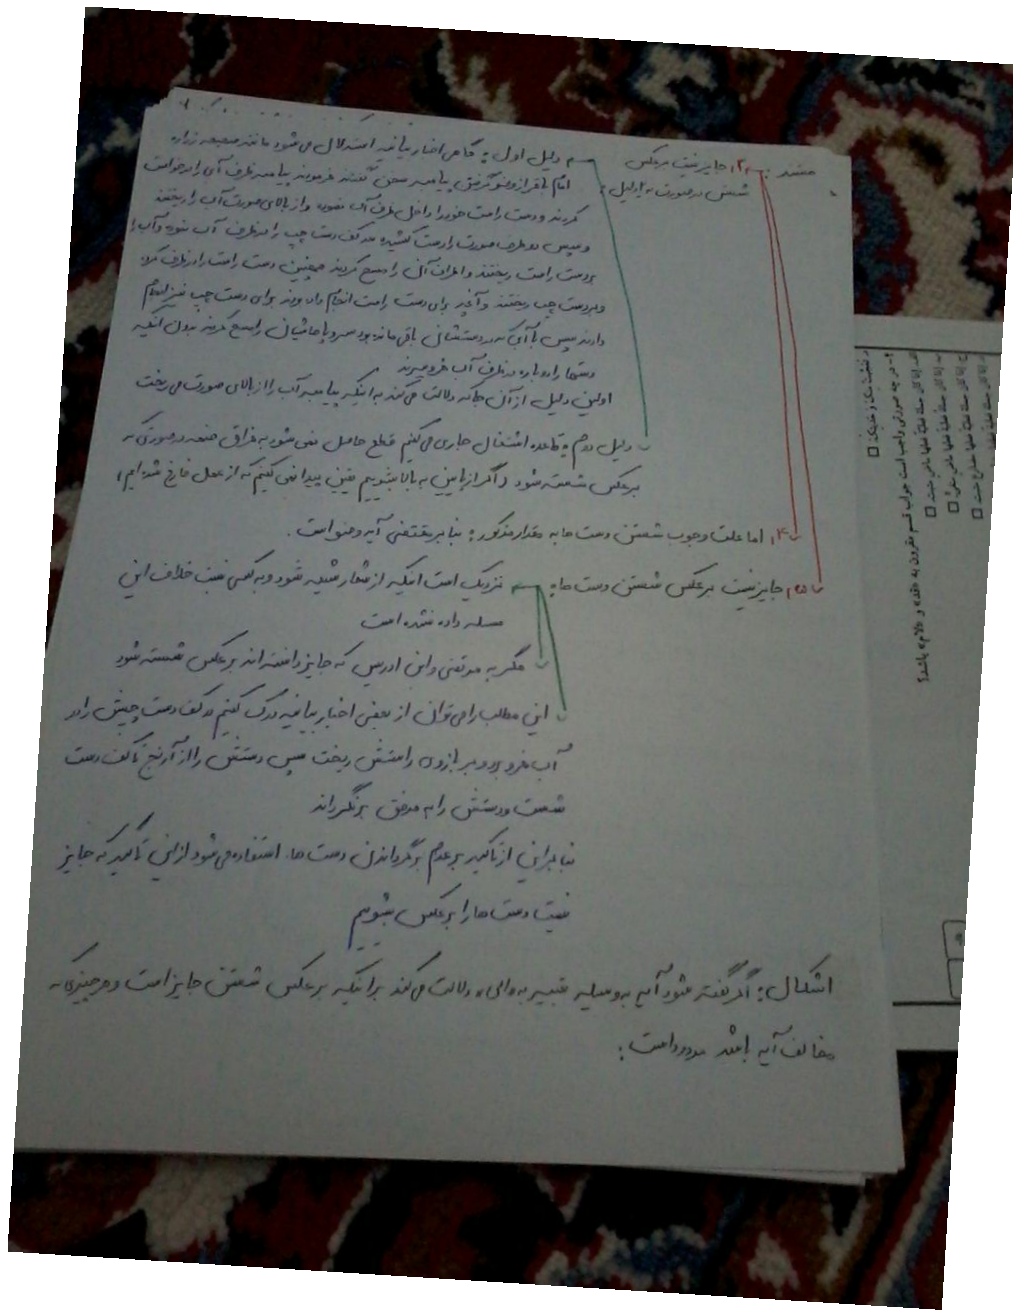 مستند: ۲، جایز نیست برعکس
شستن در صورت به ۲ دلیل:
دلیل اول: گاهی اخبار بیانیه استدلال می شود مانند صحیحه زراره
امام باقر از وضو گرفتن پیامبر سخن گفتند فرمودند پیامبر ظرف آبی را درخواست
کردند و دست راست خود را داخل ظرف آب نموده و از بالای صورت آب را ریختند
و سپس دو طرف صورت را دست کشیده و کف دست چپ را در ظرف آب نموده و آب را
بر دست راست ریختند و اطراف آن را مسح کردند همچنین دست راست را در ظرف کرده
و بر دست چپ ریختند و آنچه برای دست راست انجام داده بودند برای دست چپ نیز انجام
دادند سپس با آبی که در دستشان باقی مانده بود سر و پاهایشان را مسح کردند بدون آنکه
دستها را دوباره در ظرف آب فرو ببرند
اولین دلیل از آن جا که دلالت می کند به اینکه پیامبر آب را از بالای صورت می ریخت
دلیل دوم: قاعده اشتغال جاری می کنیم قطع حاصل نمی شود به فراق ضمه در صورتی که
برعکس شسته شود (اگر از پایین به بالا بشوییم یقین پیدا نمی کنیم که از عمل فارغ شده ایم)
۴، اما علت وجوب شستن دست ها به مقدار مذکور: بنابر مقتضی آیه وضو است.
۵، جایز نیست برعکس شستن دست ها: نزدیک است اینکه از شعار شیعه شود و به کسی نسبت خلاف این
مسئله داده نشده است
مگر به مرتضی و ابن ادریس که جایز دانسته اند برعکس شسته شود
این مطالب را می توان از بعضی اخبار بیانیه درک کنیم که کف دست چپش را در
آب فرو برد و بر بازوی راستش ریخت سپس دستش را از آرنج تا کف دست
شست و دستش را به مرفق برنگرداند
بنابراین از تاکید بر عدم برگرداندن دست ها، استفاده می شود از این تاکید که جایز
نیست دست ها را برعکس بشوییم
اشکال: اگر گفته شود آیه به وسیله تعبیر به «الی» دلالت می کند بر اینکه برعکس شستن جایز است و هر چیزی که
مخالف آیه باشد مردود است:
۲- در چه صورتی واجب است جواب قسم مقرون به «قد» و «لام» باشد؟